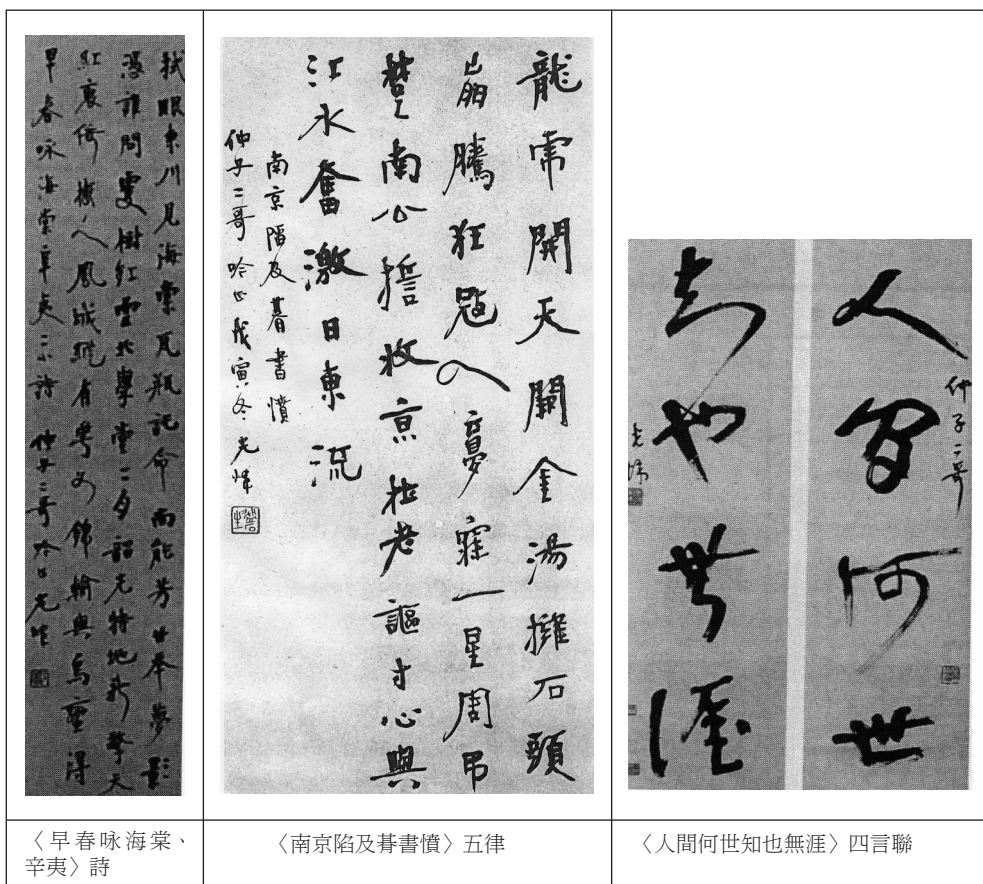 拭眼東川見海棠瓦瓶託命尚能芳廿年夢影
憑誰問雙樹紅雲北學堂一夕韶光特地新擎天
紅裏倚樓人風城縱有錦輸與烏靈得
早春咏海棠辛夷二小詩 仲子二哥吟正光煒
龍虎開天闕金湯擁石頭
崩騰狂寇入憂寐一星周弔
楚南公誓收京杜老謳寸心與
江水奮激日東流
南京陷及朞書憤
仲子二哥吟正戊寅冬光煒
人間何世
仲子二哥
知也無涯
光煒
〈早春咏海棠、
辛夷〉詩
〈南京陷及朞書憤〉五律
〈人間何世知也無涯〉四言聯